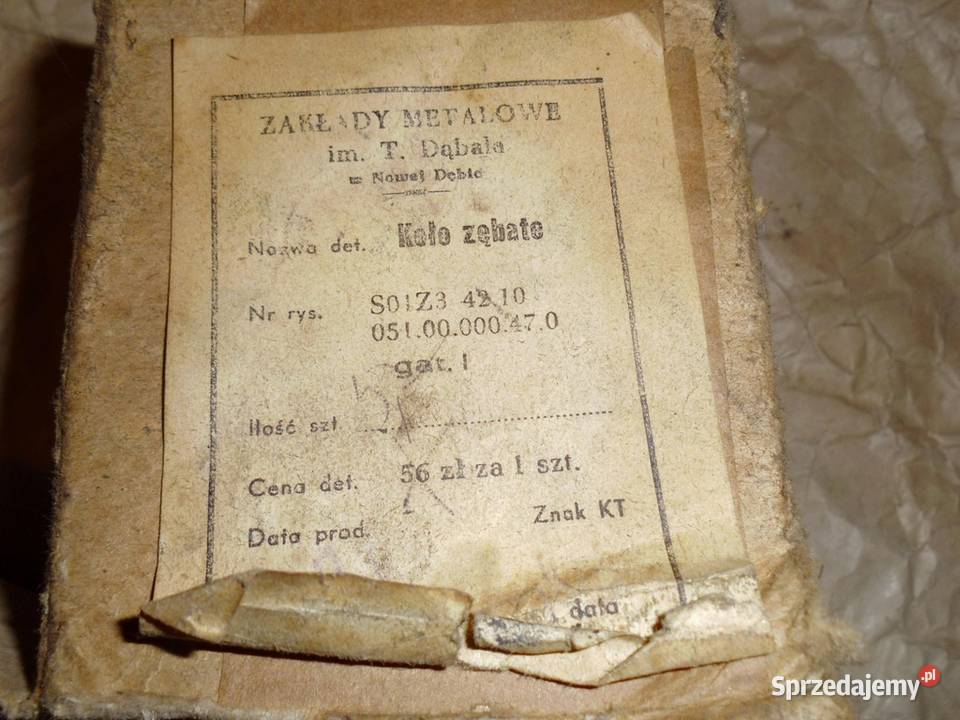 ZAKŁADY METALOWE
im. T. Dąbala
w Nowej Dębie
Nazwa det. Koło zębate
Nr rys. S01Z3 42.10
051.00.000.47.0
gat. I
Ilość szt.
Cena det. 56 zł za 1 szt.
Data prod. Znak KT
data
Sprzedajemy.pl